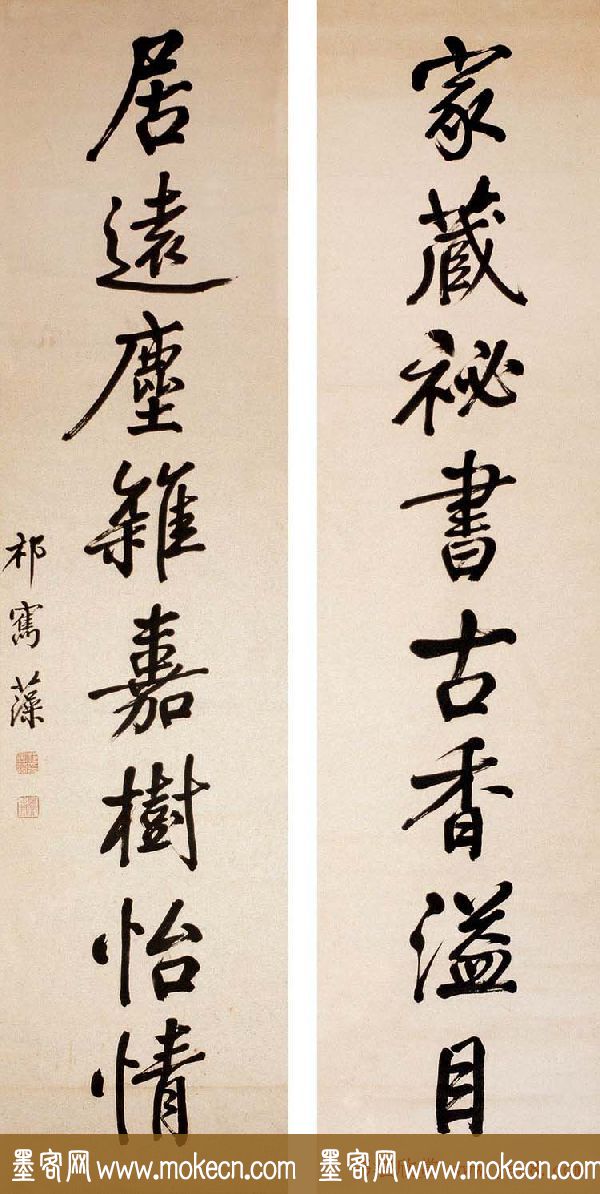 家藏祕書古香溢目
居遠塵雜嘉樹怡情
祁寯藻
墨客网 www.mokecn.com
墨客网 www.mokecn.com